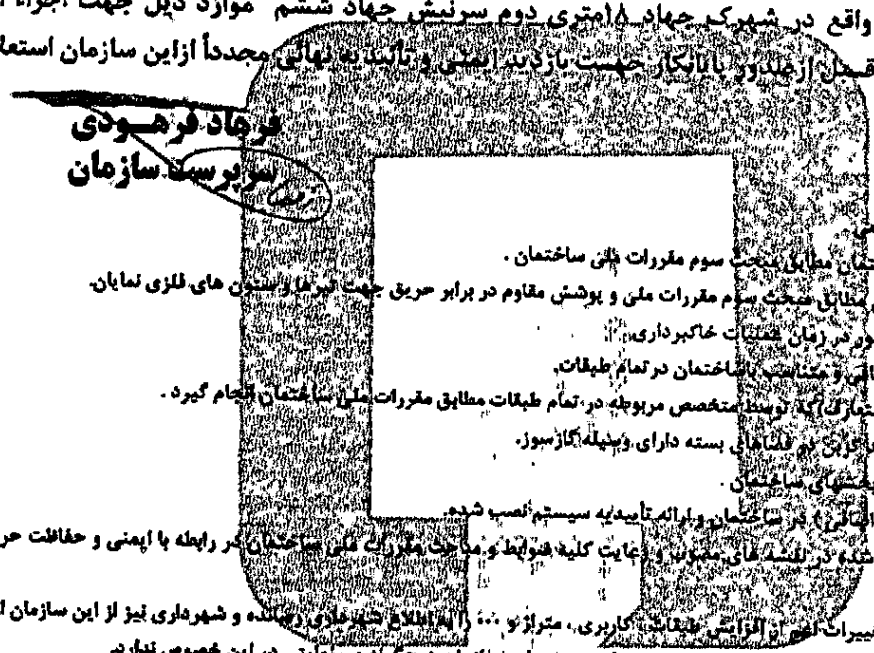 واقع در شهرک جهاد ۱۸متری دوم سرنبش جهاد ششم موارد ذیل جهت اجراء
قبل ازصدور پایانکار جهت بازدید ایمنی و تأئیدیه نهائی مجدداً ازاین سازمان استعلا
فرهاد فرهودی
سرپرست سازمان
مطابق مبحث سوم مقررات ملی ساختمان .
مطابق مبحث سوم مقررات ملی و پوشش مقاوم در برابر حریق جهت تیرها و ستون های فلزی نمایان.
در زمان عملیات خاکبرداری.
و متناسب با ساختمان در تمام طبقات.
که توسط متخصص مربوطه در تمام طبقات مطابق مقررات ملی ساختمان انجام گیرد .
در فضاهای بسته دارای وسیله گازسوز.
بخشهای ساختمان .
در ساختمان و ارائه تأییدیه سیستم نصب شده.
شده در نقشه های مصوب و رعایت کلیه ضوابط و مباحث مقررات ملی ساختمان در رابطه با ایمنی و حفاظت حر
تغییرات اعم از افزایش طبقات ، کاربری ، متراژ و ... را به اطلاع شهرداری رسانده و شهرداری نیز از این سازمان
در این خصوص ندارد.